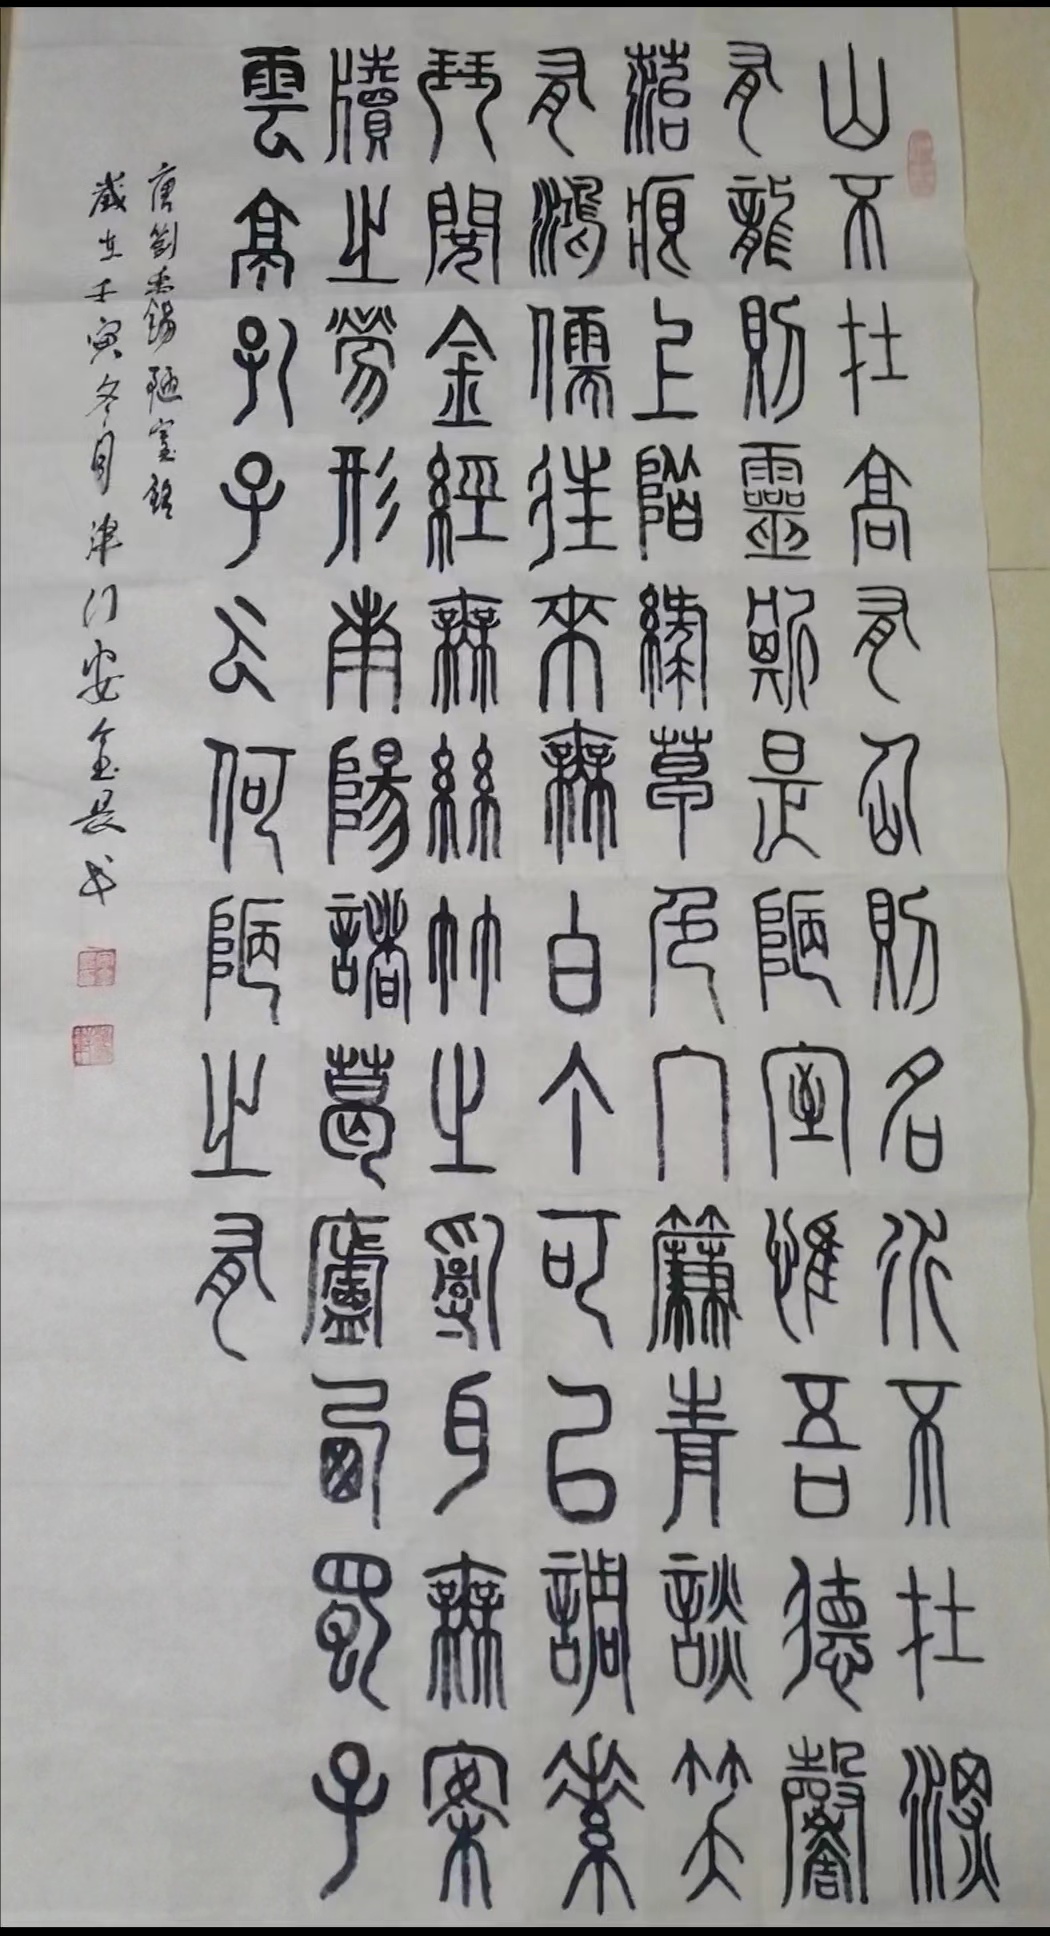 山不在高有仙則名水不在深
有龍則靈斯是陋室惟吾德馨
苔痕上階綠草色入簾青談笑
有鴻儒往來無白丁可以調素
琴閱金經無絲竹之亂耳無案
牘之勞形南陽諸葛廬西蜀子
雲亭孔子云何陋之有
唐劉禹錫陋室銘
歲在壬寅冬月津门安金书